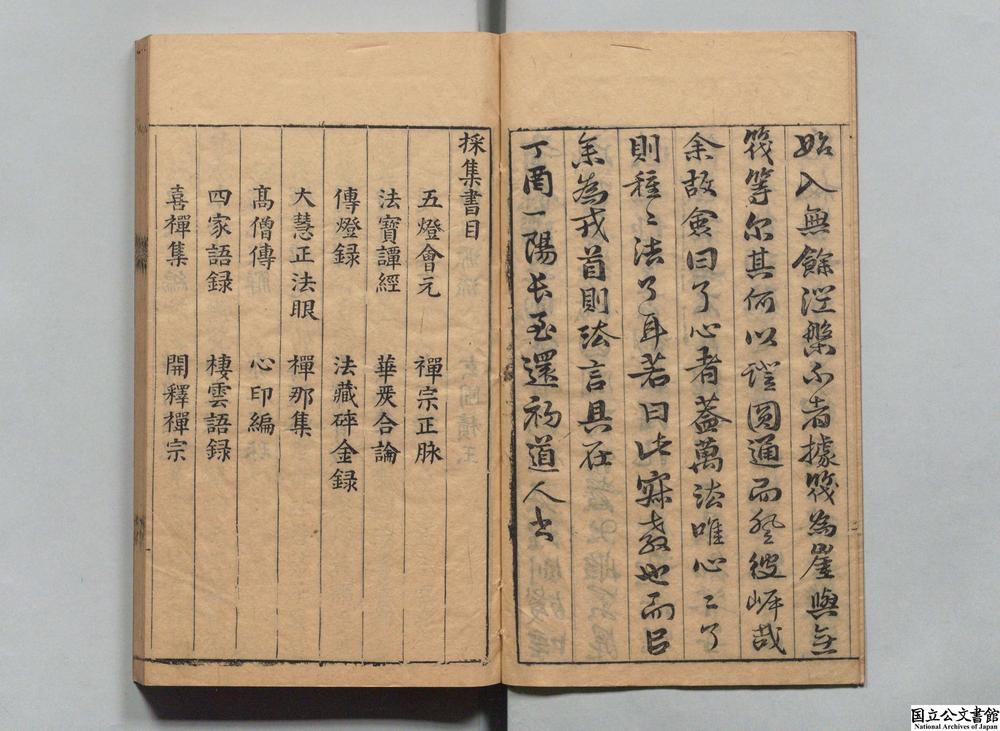 始入無餘涅槃不者據筏為崖與無
筏等尔其何以證圓通而登彼岸哉
余故僉曰了心者蓋萬法唯心二了
則種〻法了耳若曰此寐教也而㠯
余為戎首則法言具在
丁酉一陽長至還初道人書
採集書目
五燈會元　禪宗正脉
法寶譚經　華嚴合論
傳燈録　法藏碎金録
大慧正法眼　禪那集
髙僧傳　心印編
四家語録　棲雲語録
喜禪集　開釋禪宗
国立公文書館
National Archives of Japan